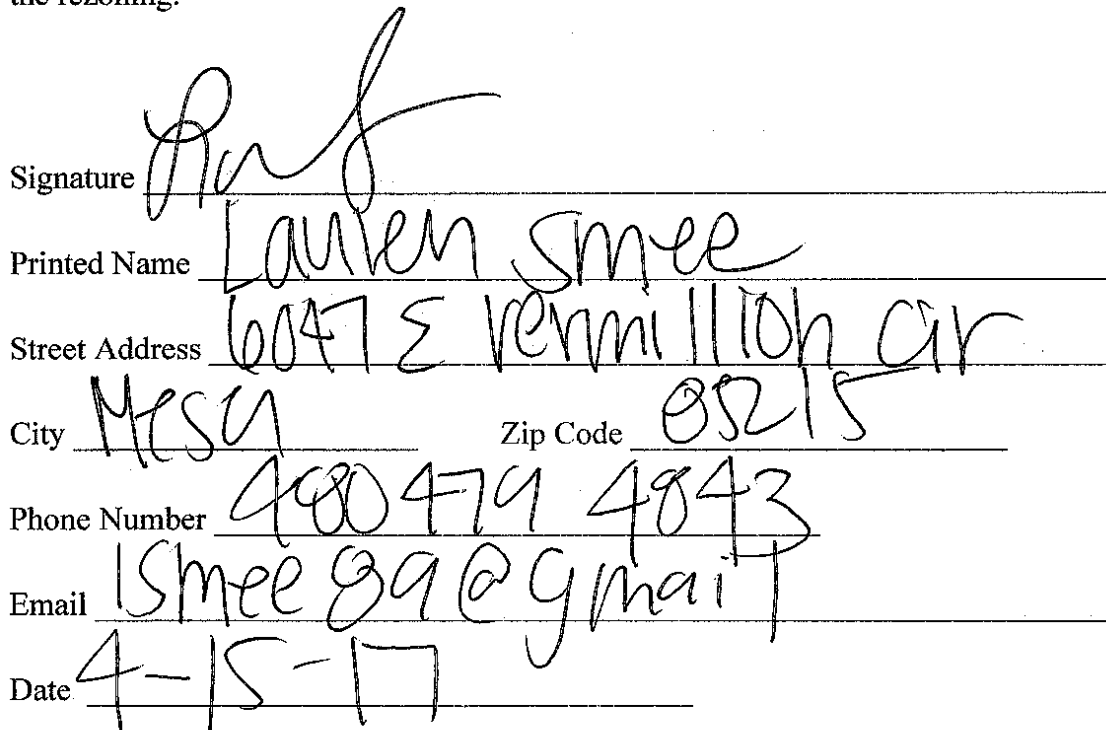 the rezoning.
Signature
Printed Name Lauren Smee
Street Address 6047 E Vermillion Cir
City Mesa Zip Code 85215
Phone Number 480 479 4843
Email lsmee89@gmail
Date 4-15-17